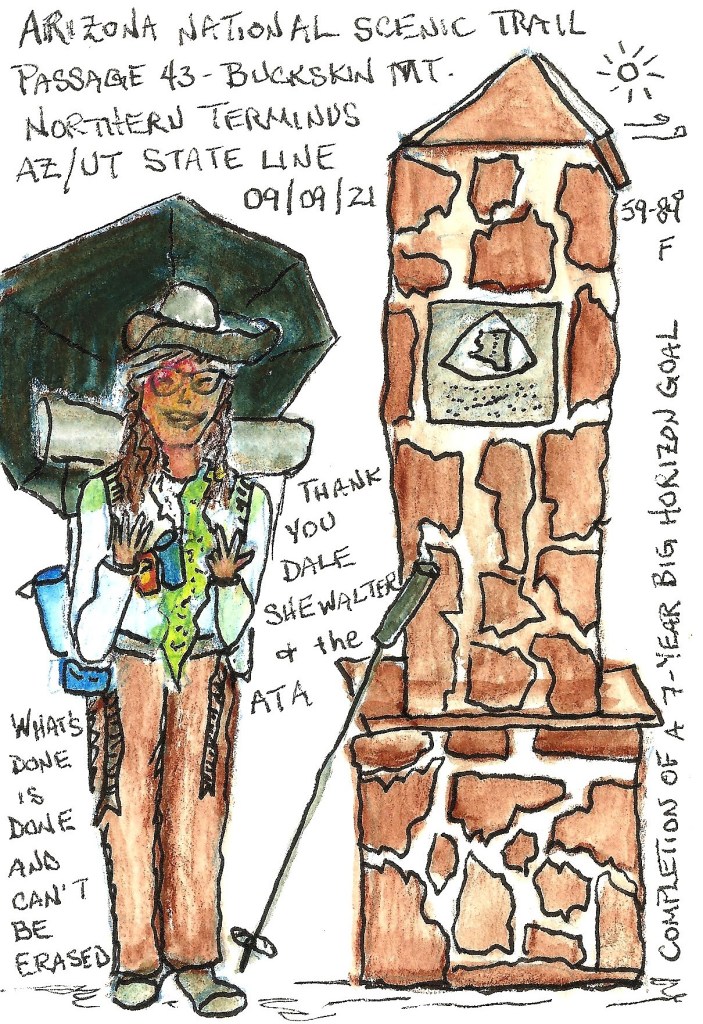 ARIZONA NATIONAL SCENIC TRAIL
PASSAGE 43 - BUCKSKIN MT.
NORTHERN TERMINUS
AZ/UT STATE LINE
09/09/21
59-84°
F
THANK
YOU
DALE
SHEWALTER
& the
ATA
WHAT'S
DONE
IS
DONE
AND
CAN'T
BE
ERASED
COMPLETION OF A 7-YEAR BIG HORIZON GOAL